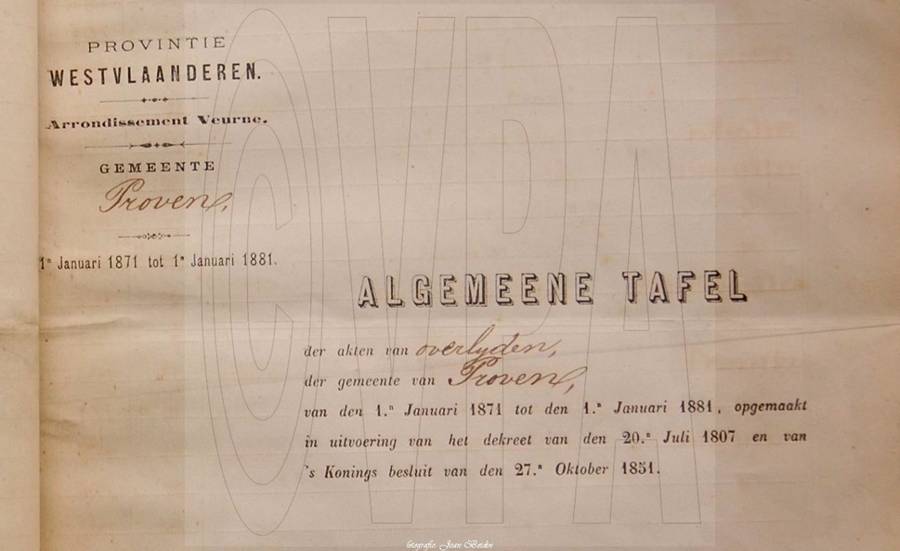 PROVINTIE
WESTVLAANDEREN.
Arrondissement Veurne.
GEMEENTE
Proven,
1n Januari 1871 tot 1n Januari 1881.
ALGEMEENE TAFEL
der akten van overlyden,
der gemeente van Proven,
van den 1.n Januari 1871 tot den 1.n Januari 1881, opgemaakt
in uitvoering van het dekreet van den 20.n Juli 1807 en van
's Konings besluit van den 27.n Oktober 1851.
CVPA
fotografie: Jean